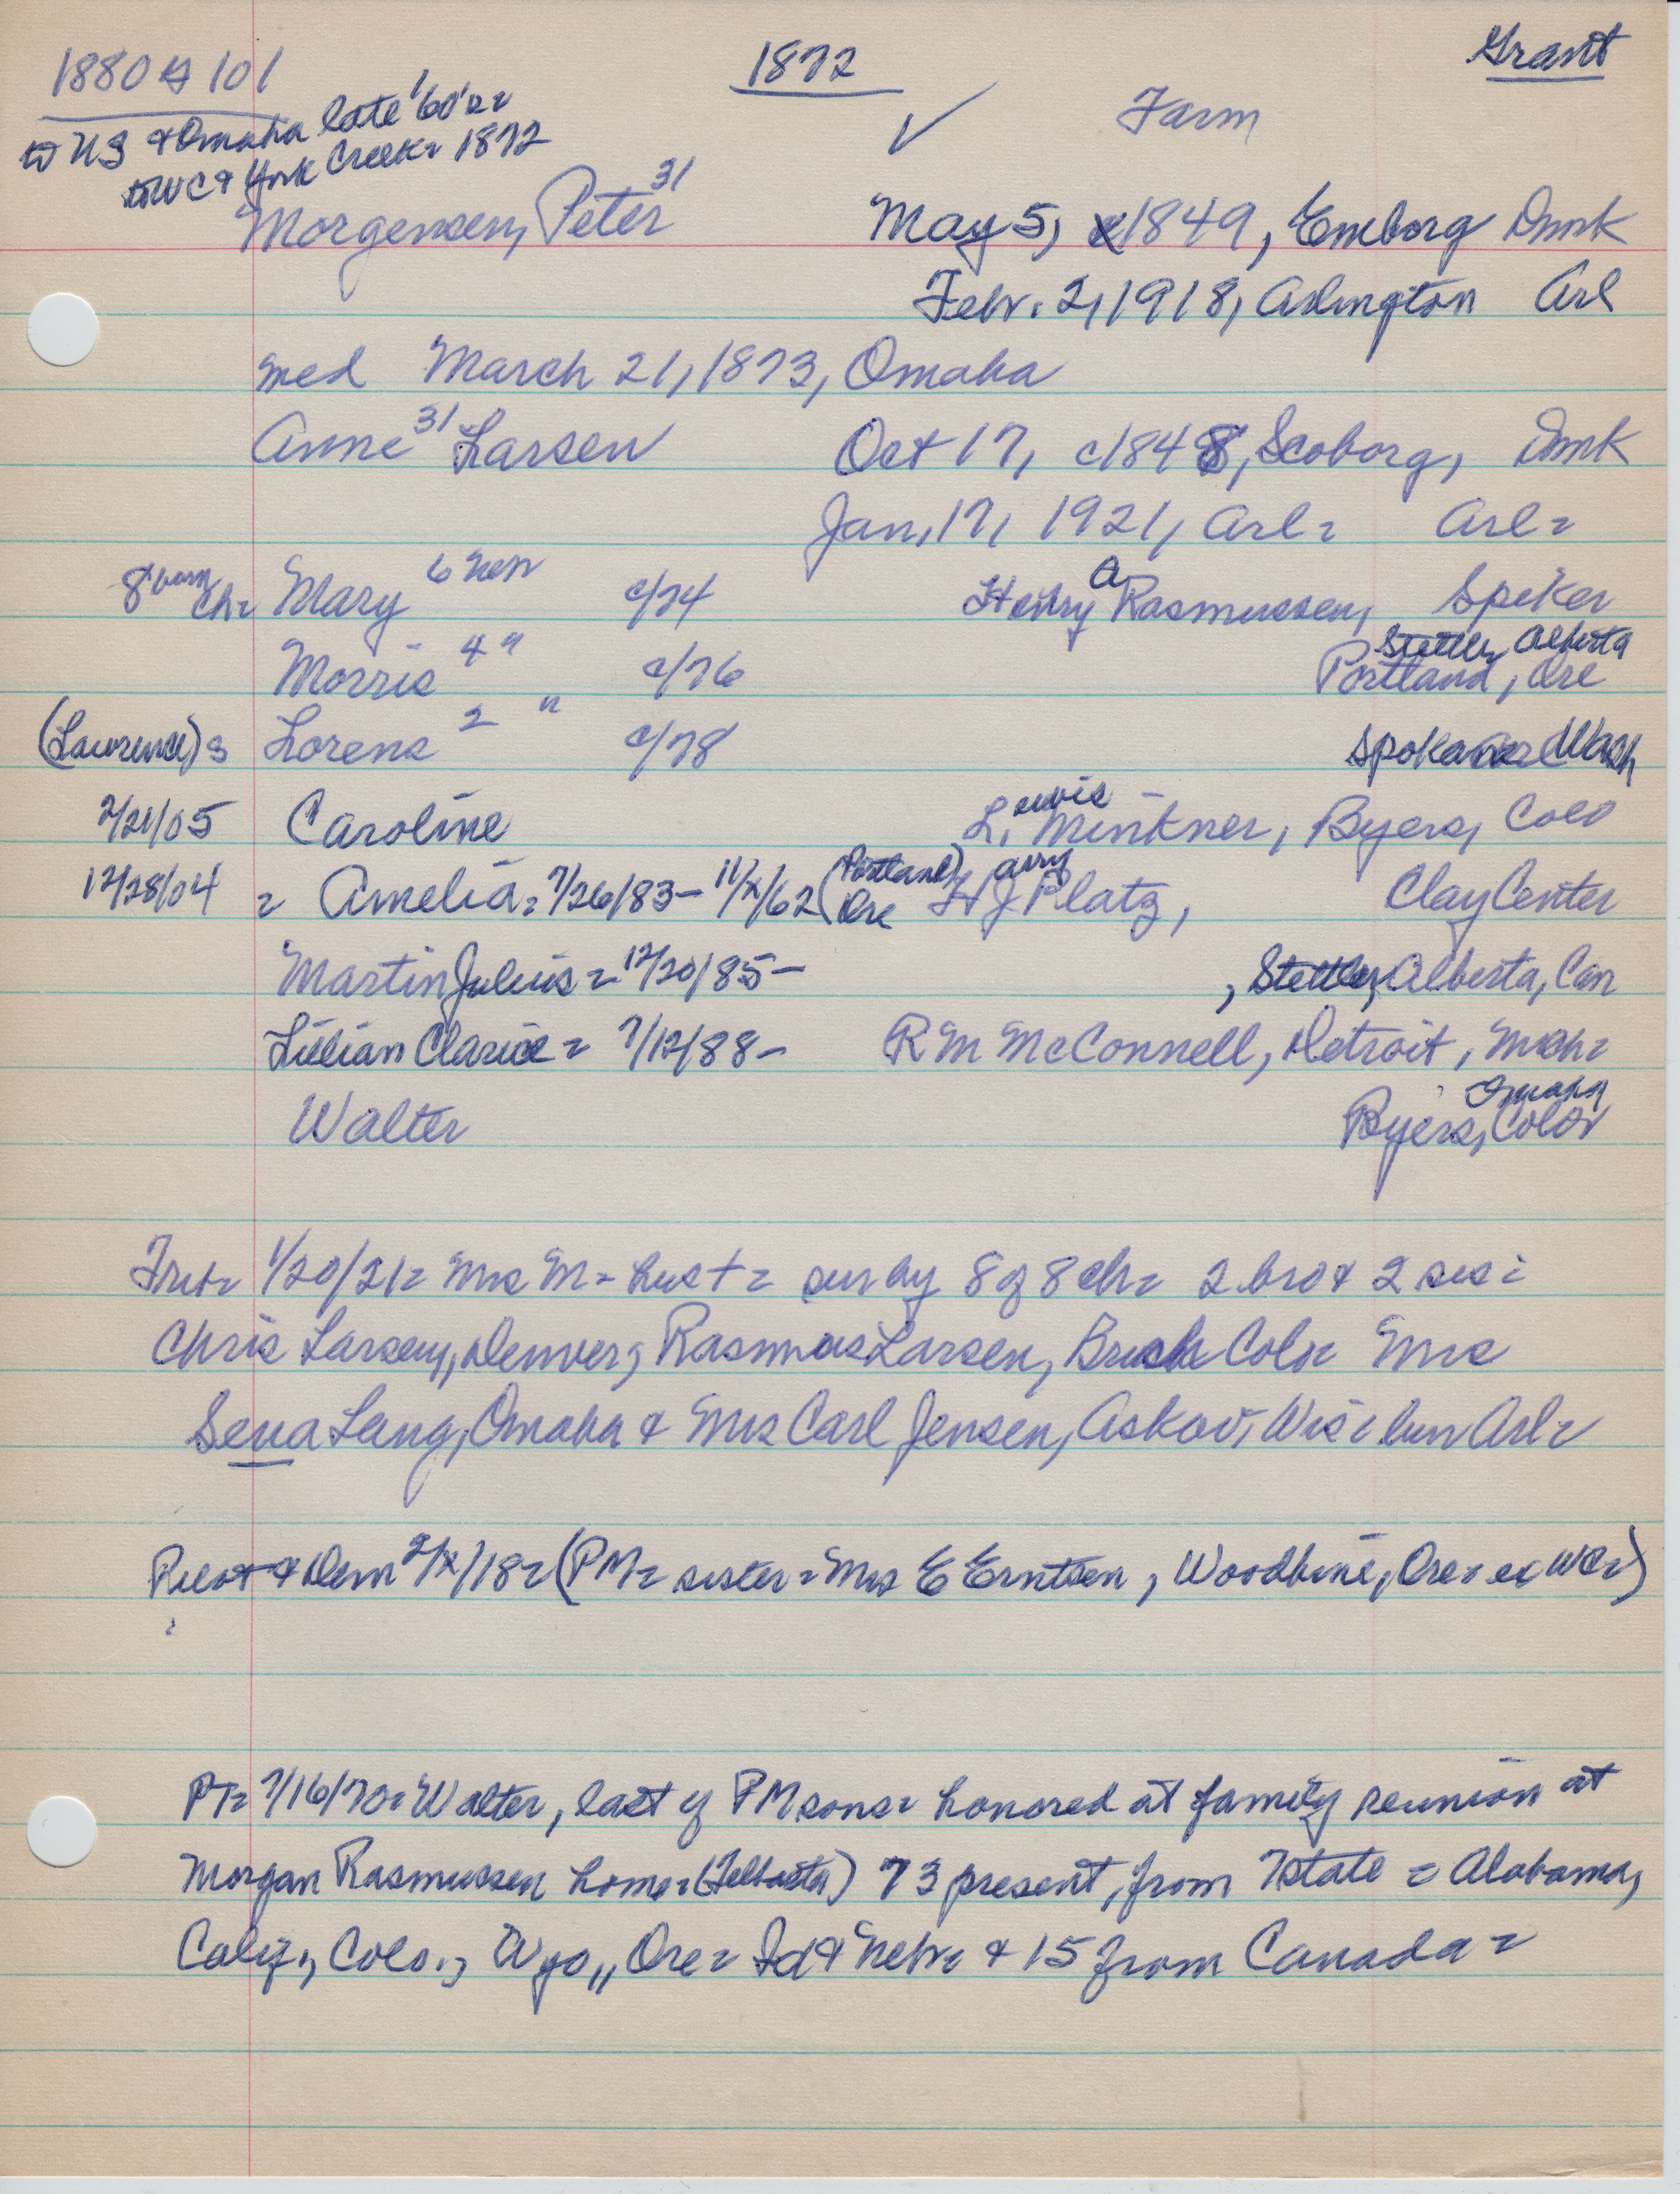 1880 101
1872
Grant
to US & Omaha late '60's=
to WC & York Creek= 1872
✓
Farm
Morgensen, Peter 31
May 5, 1849, Emborg Dmk
Febr. 2, 1918, Arlington Arl
med March 21, 1873, Omaha
Anne 31 Larsen
Oct 17, c1848, Scoborg, Dmk
Jan. 17, 1921, Arl= Arl=
8 born ch= Mary 6 Neb c/74 Henry A Rasmussen, Spiker
Morris 4 " c/76 Stettler, Alberta
Portland, Ore
(Lawrence) = Lorens 2 " c/78 Spokane Wash
2/21/05 Caroline L. ewis Minkner, Byers, Colo
12/28/04 = Amelia= 7/26/83 - 11/x/62 (Portland, Ore H arry J Platz, Clay Center
Martin Julius = 12/20/85 - , Stettler, Alberta, Can
Lillian Clarice = 7/12/88 - R M McConnell, Detroit, Mich=
Walter Omaha
Byers, Color
Trib= 1/20/21= Mrs M= hus+= sur by 8 of 8 ch= 2 bro & 2 sis=
Chris Larsen, Denver, Rasmus Larsen, Brush Col= Mrs
Sena Lang, Omaha & Mrs Carl Jensen, Askov, Wis= bur Arl=
Pilot & Dem 2/x/18= (PM= sister= Mrs E Erntsen, Woodbine, Ore= ex WC=)
PT= 7/16/70= Walter, last of PM sons= honored at family reunion at
Morgan Rasmussen home= 73 present, from 7 state = Alabama,
Calif., Colo., Wyo,, Ore= Id & Nebr= & 15 from Canada=